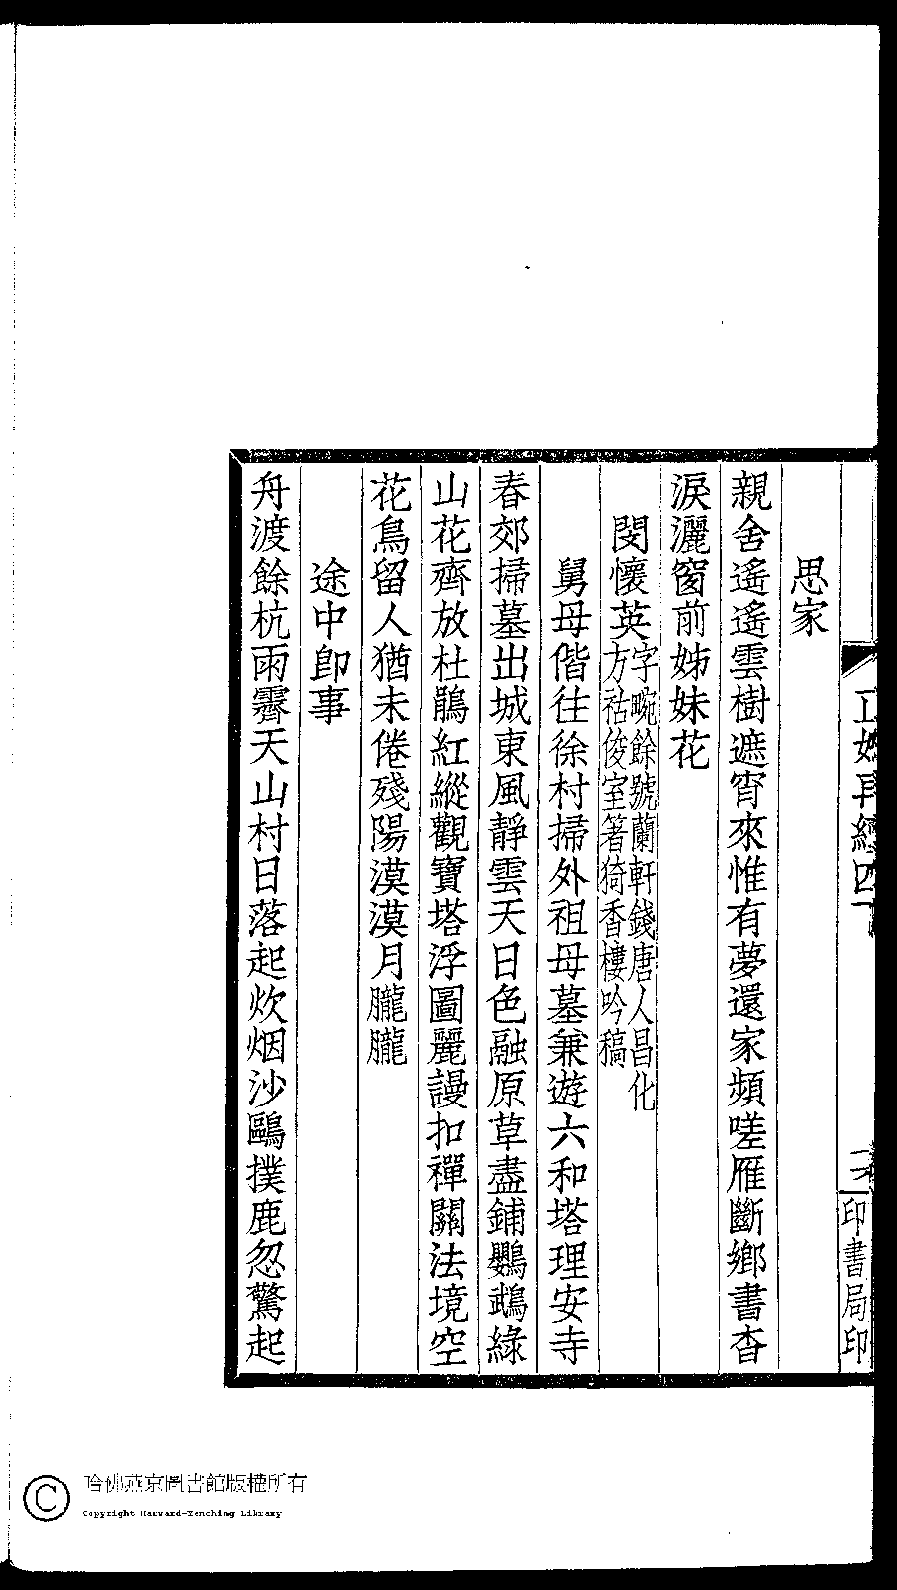 思家
親舍遙遙雲樹遮宵來惟有夢還家頻嗟雁斷鄉書杳
淚灑窗前姊妹花
閔懷英字畹餘號蘭軒錢唐人昌化
方祜俊室箸猗香樓吟稿
舅母偕往徐村掃外祖母墓兼遊六和塔理安寺
春郊掃墓出城東風靜雲天日色融原草盡鋪鸚鵡綠
山花齊放杜鵑紅縱觀寶塔浮圖麗謾扣禪關法境空
花鳥留人猶未倦殘陽漠漠月朧朧
途中卽事
舟渡餘杭雨霽天山村日落起炊烟沙鷗撲鹿忽驚起
印書局印
哈佛燕京圖書館版權所有
Copyright Harvard-Yenching Library